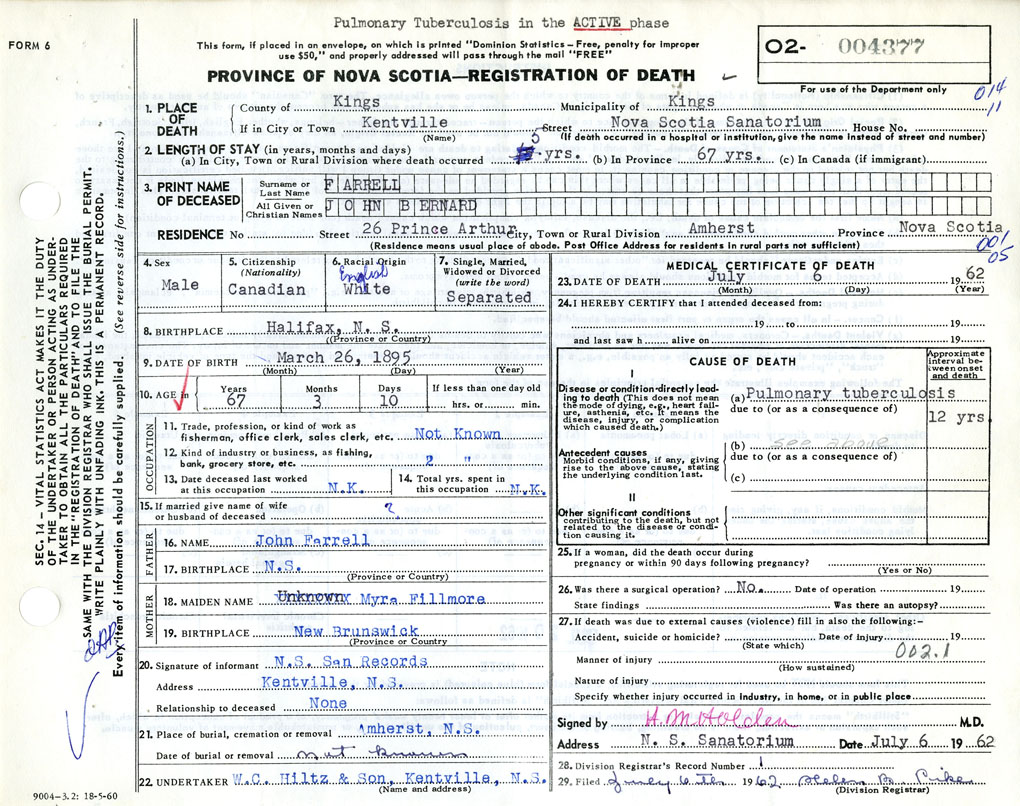 Pulmonary Tuberculosis in the ACTIVE phase
FORM 6
This form, if placed in an envelope, on which is printed "Dominion Statistics – Free, penalty for improper
use $50," and properly addressed will pass through the mail "FREE"
O2- 004377
For use of the Department only
PROVINCE OF NOVA SCOTIA—REGISTRATION OF DEATH
014
11
1. PLACE OF DEATH
County of Kings Municipality of Kings
If in City or Town Kentville Street Nova Scotia Sanatorium House No.
(Name) (If death occurred in a hospital or institution, give the name instead of street and number)
2. LENGTH OF STAY (in years, months and days)
(a) In City, Town or Rural Division where death occurred 5 yrs. (b) In Province 67 yrs. (c) In Canada (if immigrant)
3. PRINT NAME OF DECEASED
Surname or Last Name FARRELL
All Given or Christian Names JOHN BERNARD
RESIDENCE No Street 26 Prince Arthur City, Town or Rural Division Amherst Province Nova Scotia
(Residence means usual place of abode. Post Office Address for residents in rural parts not sufficient)
001
05
4. Sex
Male
5. Citizenship
(Nationality)
Canadian
6. Racial Origin
English
White
7. Single, Married,
Widowed or Divorced
(write the word)
Separated
8. BIRTHPLACE Halifax, N. S.
((Province or Country)
9. DATE OF BIRTH March 26, 1895
(Month) (Day) (Year)
10. AGE in
Years Months Days If less than one day old
67 3 10 hrs. or min.
OCCUPATION
11. Trade, profession, or kind of work as
fisherman, office clerk, sales clerk, etc. Not Known
12. Kind of industry or business, as fishing,
bank, grocery store, etc. 2 "
13. Date deceased last worked
at this occupation N.K.
14. Total yrs. spent in
this occupation N.K.
15. If married give name of wife
or husband of deceased ?
FATHER
16. NAME John Farrell
17. BIRTHPLACE N.S.
(Province or Country)
MOTHER
18. MAIDEN NAME Unknown Myra Fillmore
19. BIRTHPLACE New Brunswick
(Province or Country
20. Signature of informant N.S. San Records
Address Kentville, N.S.
Relationship to deceased None
21. Place of burial, cremation or removal Amherst, N.S.
Date of burial or removal not known
22. UNDERTAKER W.C. Hiltz & Son, Kentville, N.S.
(Name and address)
MEDICAL CERTIFICATE OF DEATH
23. DATE OF DEATH July 6 1962
(Month) (Day) (Year)
24. I HEREBY CERTIFY that I attended deceased from:
19 to 19
and last saw h alive on 19
CAUSE OF DEATH
Approximate
interval be-
tween onset
and death
I
Disease or condition directly lead-
ing to death (This does not mean
the mode of dying, e.g., heart fail-
ure, asthenia, etc. It means the
disease, injury, or complication
which caused death.)
(a) Pulmonary tuberculosis
due to (or as a consequence of)
12 yrs.
(b) see above
due to (or as a consequence of)
(c)
Antecedent causes
Morbid conditions, if any, giving
rise to the above cause, stating
the underlying condition last.
II
Other significant conditions
contributing to the death, but not
related to the disease or condi-
tion causing it.
25. If a woman, did the death occur during
pregnancy or within 90 days following pregnancy?
(Yes or No)
26. Was there a surgical operation? No. Date of operation 19
State findings Was there an autopsy?
27. If death was due to external causes (violence) fill in also the following:–
Accident, suicide or homicide? Date of Injury 19
(State which)
002.1
Manner of injury
(How sustained)
Nature of injury
Specify whether injury occurred in industry, in home, or in public place
Signed by H. M. Holden M.D.
Address N. S. Sanatorium Date July 6 1962
28. Division Registrar's Record Number 1
29. Filed 1962 Helen B.
(Division Registrar)
SEC. 14 – VITAL STATISTICS ACT MAKES IT THE DUTY
OF THE UNDERTAKER OR PERSON ACTING AS UNDER-
TAKER TO OBTAIN ALL THE PARTICULARS REQUIRED
IN THE "REGISTRATION OF DEATH" AND TO FILE THE
SAME WITH THE DIVISION REGISTRAR WHO SHALL ISSUE THE BURIAL PERMIT.
WRITE PLAINLY WITH UNFADING INK. THIS IS A PERMANENT RECORD.
Every item of information should be carefully supplied. (See reverse side for instructions.)
9004-3.2: 18-5-60